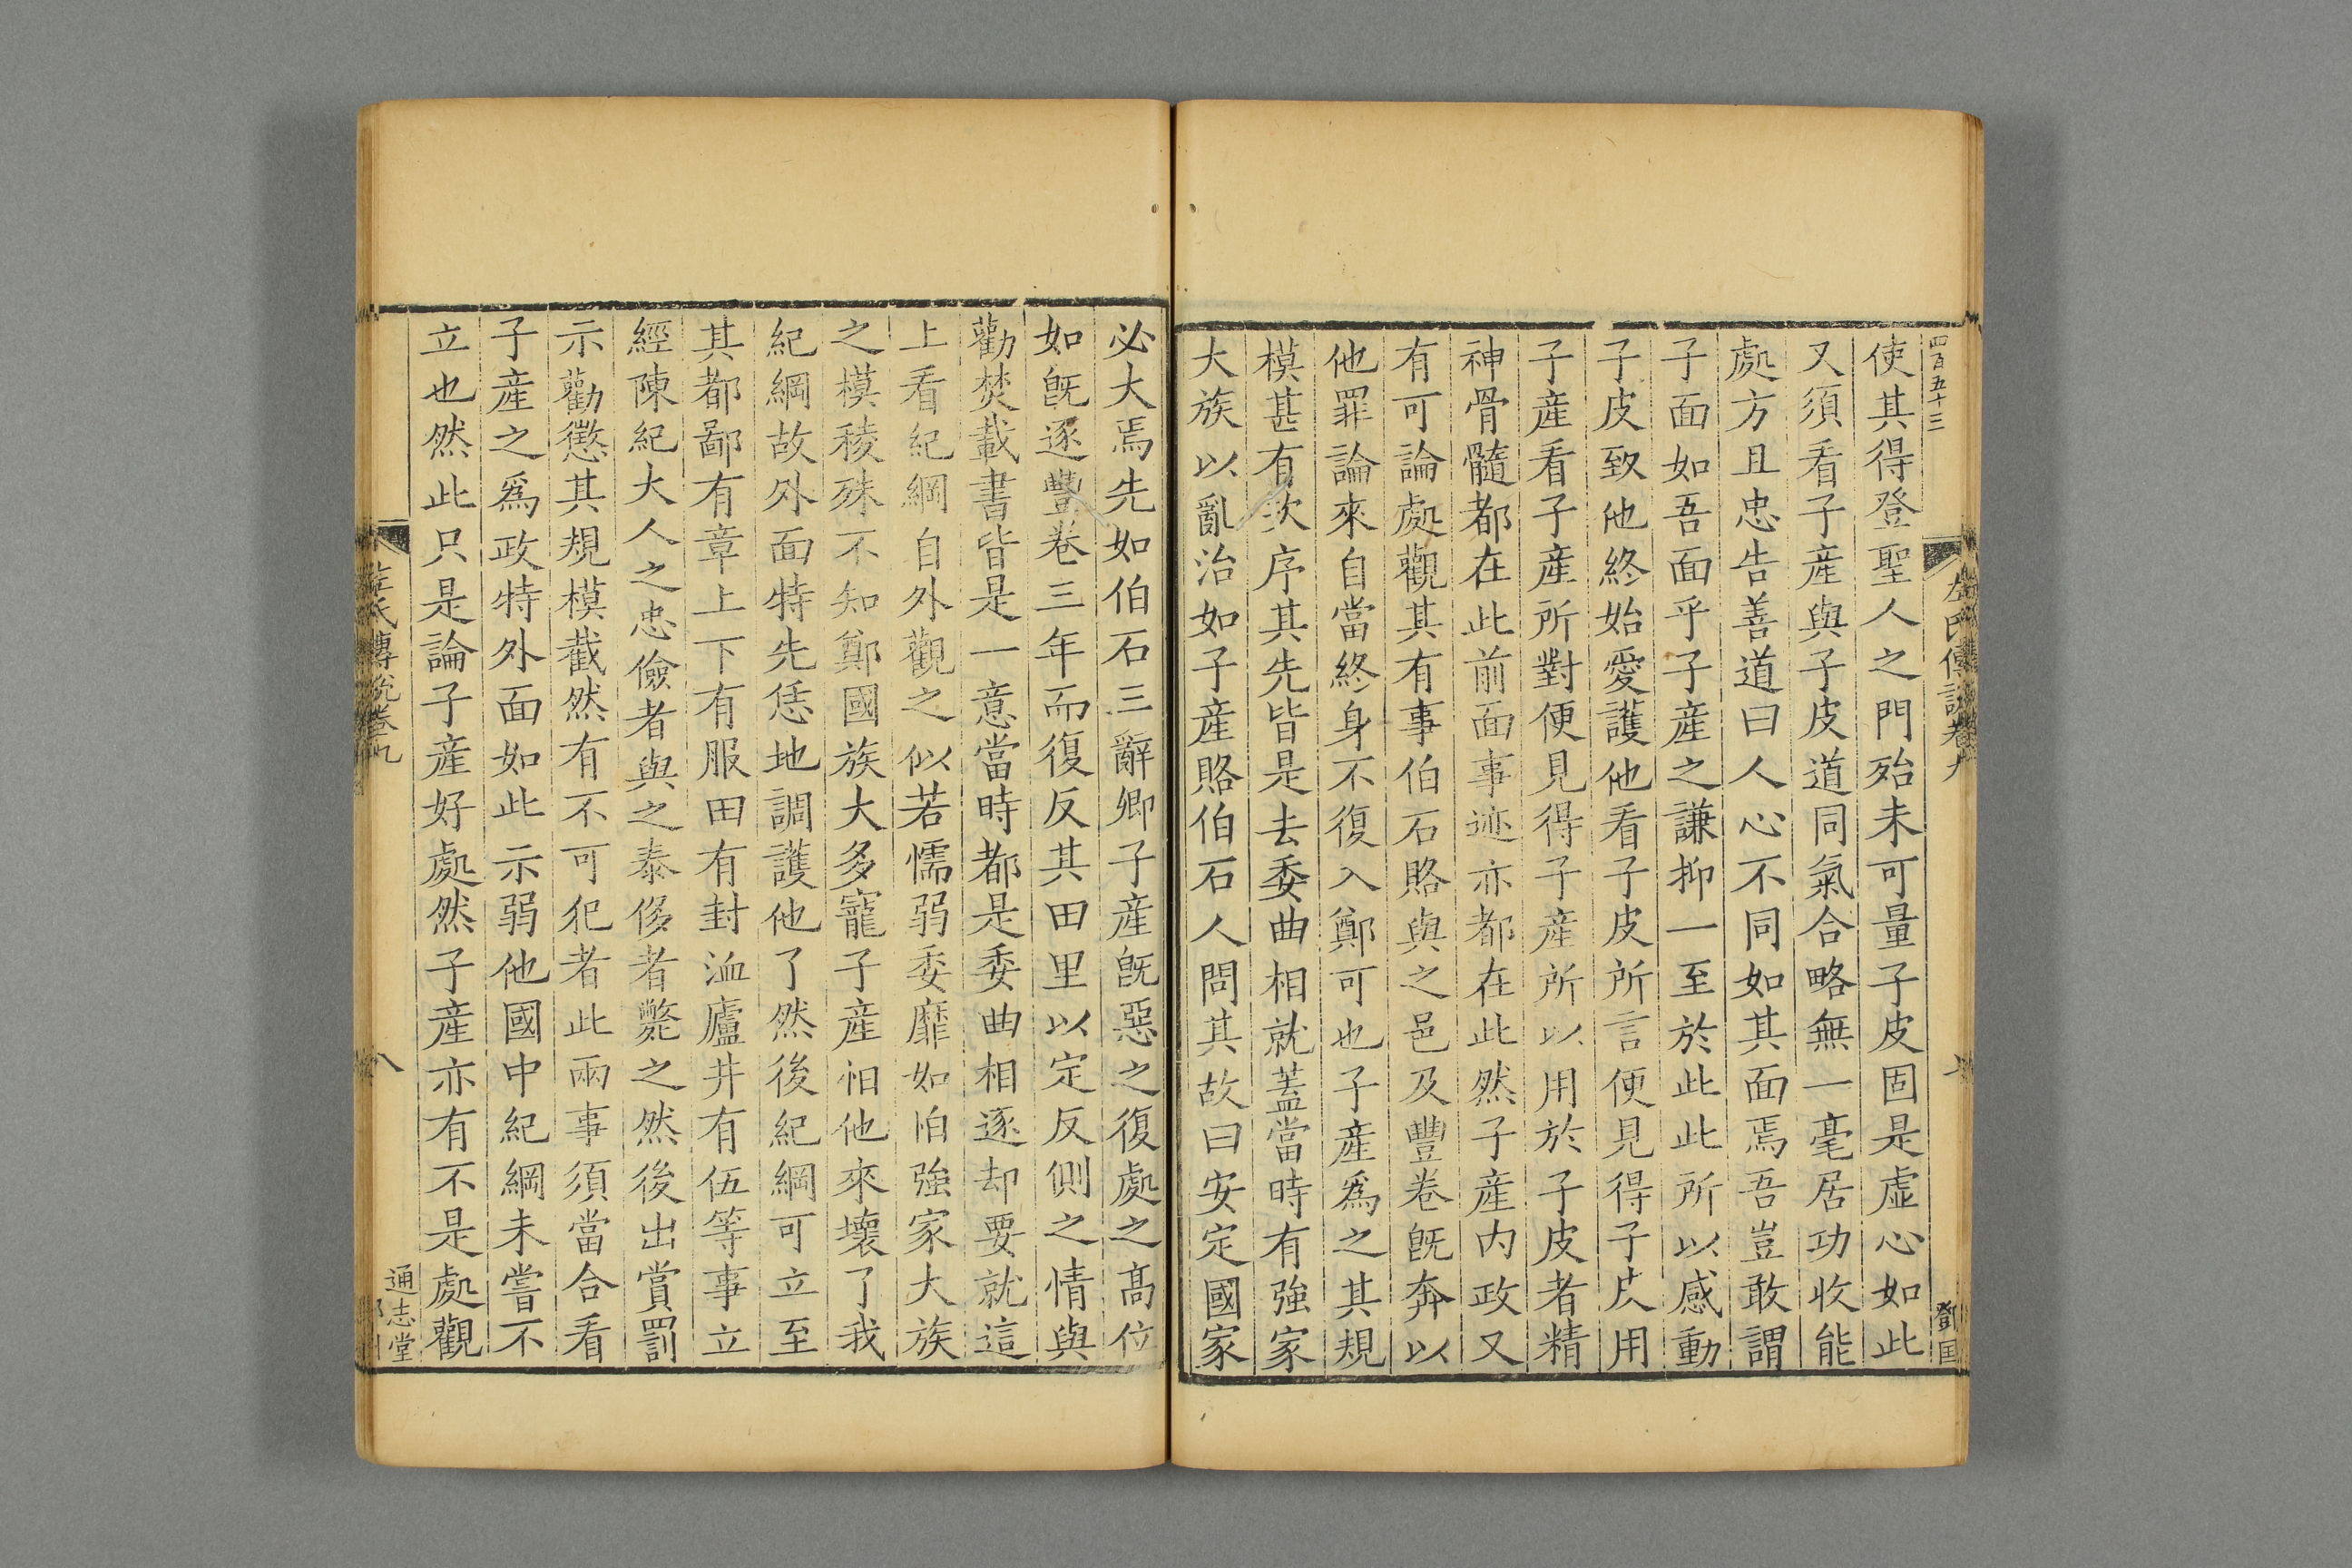 四百五十三
左氏傳說卷九
鄧国
使其得登聖人之門殆未可量子皮固是虛心如此
又須看子產與子皮道同氣合略無一毫居功收能
處方且忠告善道曰人心不同如其面焉吾豈敢謂
子面如吾面乎子產之謙抑一至於此此所以感動
子皮致他終始愛護他看子皮所言便見得子皮用
子產看子產所對便見得子產所以用於子皮者精
神骨髓都在此前面事迹亦都在此然子產內政又
有可論處觀其有事伯石賂與之邑及豐卷旣奔以
他罪論來自當終身不復入鄭可也子產爲之其規
模甚有次序其先皆是去委曲相就蓋當時有強家
大族以亂治如子產賂伯石人問其故曰安定國家
必大焉先如伯石三辭卿子產旣惡之復處之高位
如旣逐豐卷三年而復反其田里以定反側之情與
勸焚載書皆是一意當時都是委曲相逐却要就這
上看紀綱自外觀之似若懦弱委靡如怕強家大族
之模稜殊不知鄭國族大多寵子產怕他來壞了我
紀綱故外面特先恁地調護他了然後紀綱可立至
其都鄙有章上下有服田有封洫廬井有伍等事立
經陳紀大人之忠儉者與之泰侈者斃之然後出賞罰
示勸懲其規模截然有不可犯者此兩事須當合看
子產之爲政特外面如此示弱他國中紀綱未嘗不
立也然此只是論子產好處然子產亦有不是處觀
左氏傳說卷九
八
通志堂